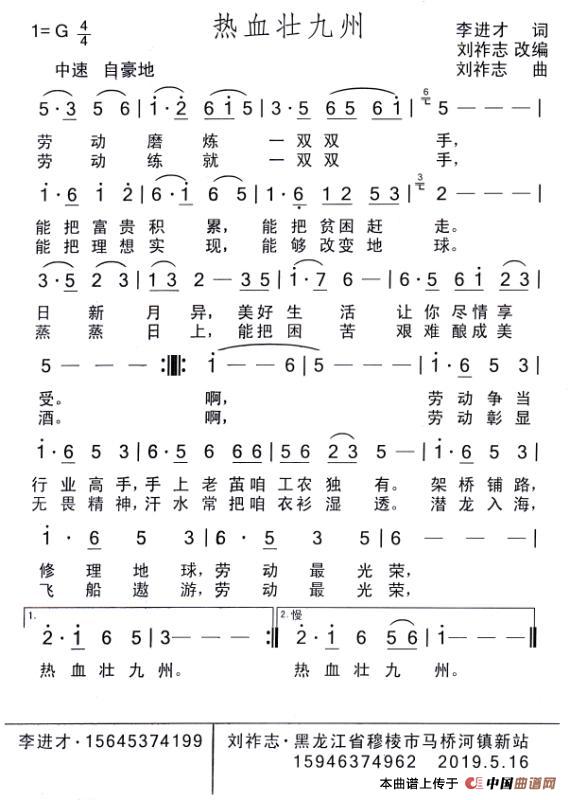 热血壮九州
1=G 4/4
李进才 词
刘祚志 改编
中速 自豪地
刘祚志 曲
5·3 5 6 | 1·2 6 1 5 | 3·5 6 5 6 1 | 6 5 — — — |
劳动磨炼一双双手,
劳动练就一双双手,
1·6 1 2 | 6·1 6 5 | 1·6 12 53 | 3 2 — — — |
能把富贵积累,能把贫困赶走。
能把理想实现,能够改变地球。
3·5 2 3 | 1 3 2 — 35 | 1·7 6 — | 6·5 61 23 |
日新月异,美好生活让你尽情享
蒸蒸日上,能把困苦艰难酿成美
5 — — :‖: 1 — — 6 | 5 — — — | 1·6 5 3 |
受。啊,劳动争当
酒。啊,劳动彰显
1·6 5 3 | 5·6 66 | 56 6 23 5 | 1·6 5 3 |
行业高手,手上老茧咱工农独有。架桥铺路,
无畏精神,汗水常把咱衣衫湿透。潜龙入海,
1·6 2 3 | 6·5 3 5 | 6 — — — |
修理地球,劳动最光荣,
飞船遨游,劳动最光荣,
1.
2.慢
2·1 6 5 | 3 — — — :‖ 2·1 6 56 | 1 — — — ‖
热血壮九州。 热血壮九州。
李进才·15645374199
刘祚志·黑龙江省穆棱市马桥河镇新站
15946374962 2019.5.16
本曲谱上传于 中国曲谱网